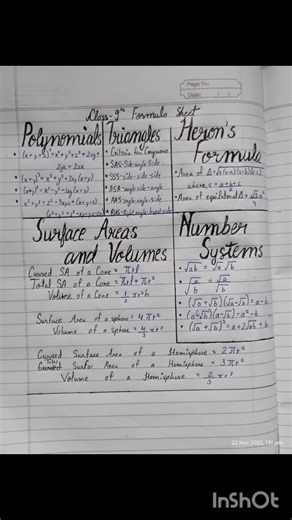 Page No.
Date
Class-9th Formula Sheet
Polynomials
• (x+y+z)²=x²+y²+z²+2xy+
2yz+2zx
• (x+y)³=x³+y³+3xy(x+y)
• (x-y)³=x³-y³-3xy(x-y)
Triangles
• Criteria for Congruence
• SAS-Side-angle-Side
• SSS-side-side-side
• ASA-angle-side-angle
• AAS-angle-angle-side
• RHS-right angle-hypot-side
Heron's
Formula
• Area of Δ=√s(s-a)(s-b)(s-c)
where, s = a+b+c
• Area of equilateral Δ = √3 a²
4
Surface Areas
and Volumes
Curved SA of a Cone = πrl
Total SA of a Cone = πrl+πr²
Volume of a Cone = 1/3 πr²h
Surface Area of a sphere = 4πr²
Volume of a sphere = 4/3 πr³
Number
Systems
• √ab = √a √b
• √a/b = √a/√b
• (√a+√b)(√a-√b)=a-b
• (a+√b)(a-√b)=a²-b
• (√a+√b)²=a+2√ab+b
Curved Surface Area of a Hemisphere = 2πr²
Total Surface Area of a Hemisphere = 3πr²
Volume of a Hemisphere = 2/3 πr³
22 Nov 2025,
InShOt